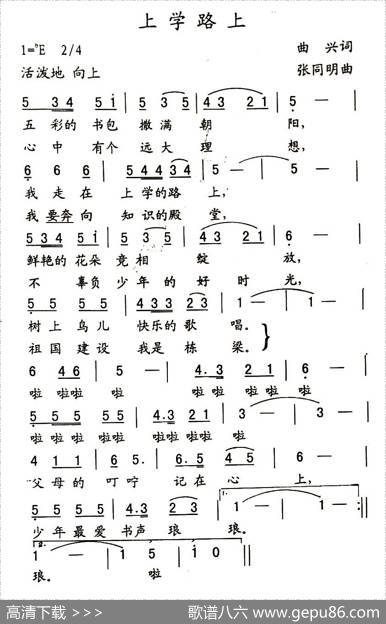 上学路上
1=♭E 2/4 曲 兴词
活泼地 向上 张同明曲
5 34 5i | 5 35 | 43 21 | 5 — |
五 彩的 书包 撒 满 朝 阳,
心 中 有个 远 大 理 想,
6 6 6 | 5443 4 | 5 — | 5 — |
我 走 在 上 学的 路 上,
我 要奔 向 知 识的 殿 堂,
534 5i | 5 35 | 43 21 | 6 — |
鲜艳的 花朵 竞 相 绽 放,
不 辜负 少 年 的 好 时 光,
55 55 | 4333 23 | 1 — | 1 — |
树上 鸟儿 快乐的 歌 唱。
祖国 建设 我是 栋 梁。
6 46 | 5 — | 4.3 21 | 6 — |
啦 啦啦 啦 啦啦 啦啦 啦
55 55 | 4.3 21 | 3 — | 3 — |
啦啦 啦啦 啦啦 啦啦 啦
4 11 | 6 5. | 6.5 45 | 6 — |
父 母的 叮 咛 记在 心 上,
55 55 | 4.3 23 | 1 — | 1 — :‖
少年 最爱 书声 琅 琅。
1 — | 1 5 | i 0 ‖
琅。 啦
高清下载 >>> 歌谱八六 www.gepu86.com